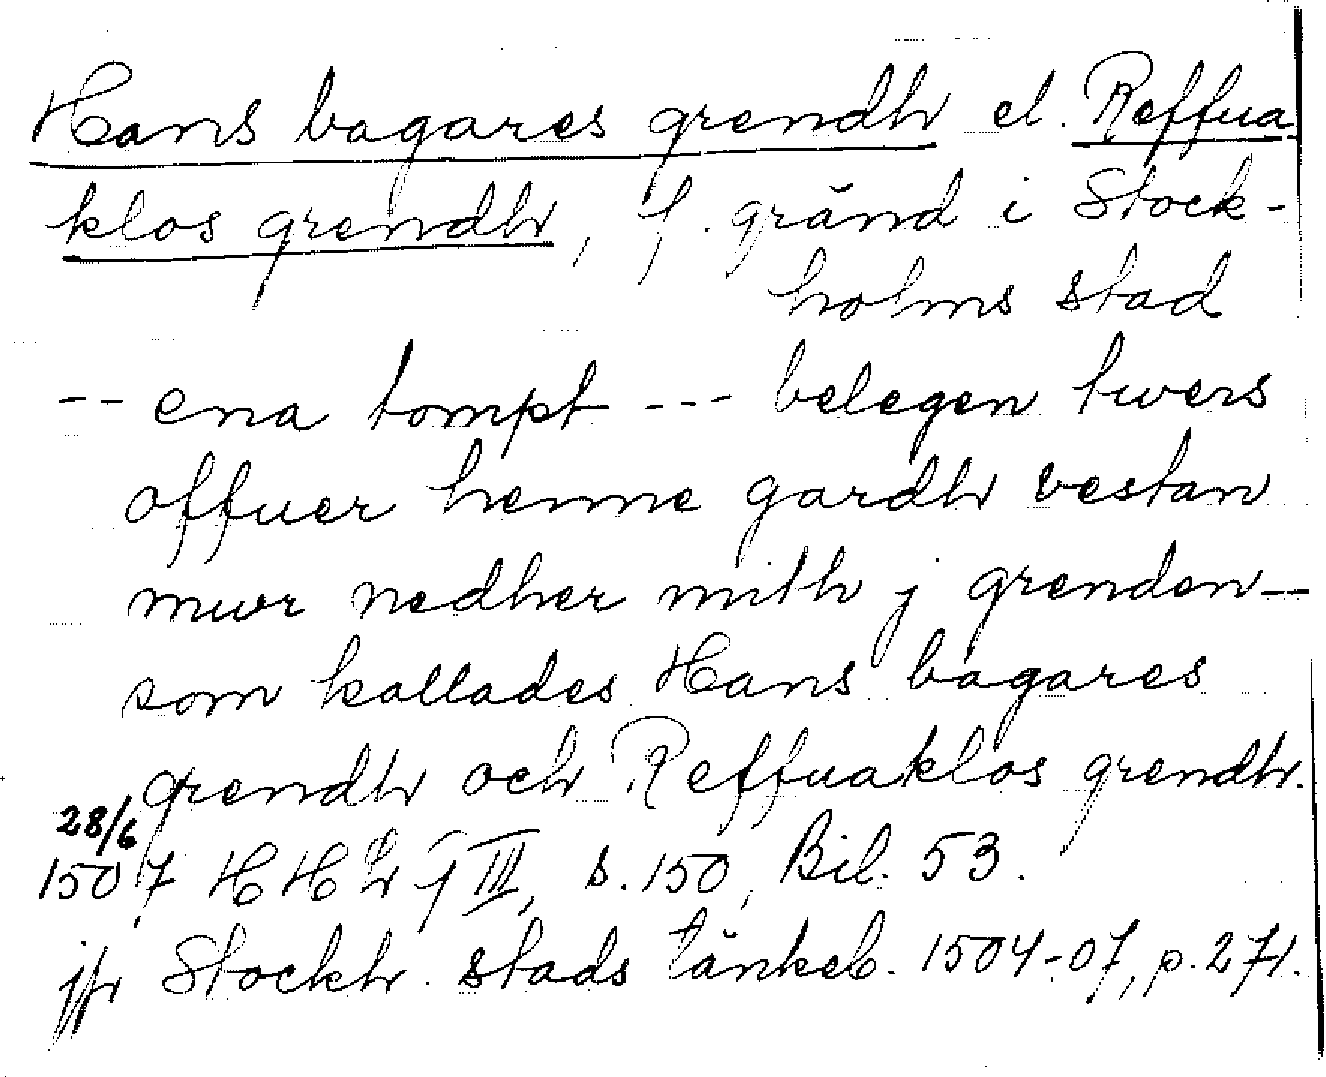 Hans bagares grendh el. Reffua
klos grendh, f. gränd i Stock-
holms stad
-- ena tompt --- belegen twers
offuer henne gardh vestan
mwr nedher mith j grenden --
som kallades Hans bagares
grendh och Reffuaklos grendh.
28/6
1507 HH III, s. 150, Bil. 53.
jfr Stockh. stads tänkeb. 1504-07, p. 271.